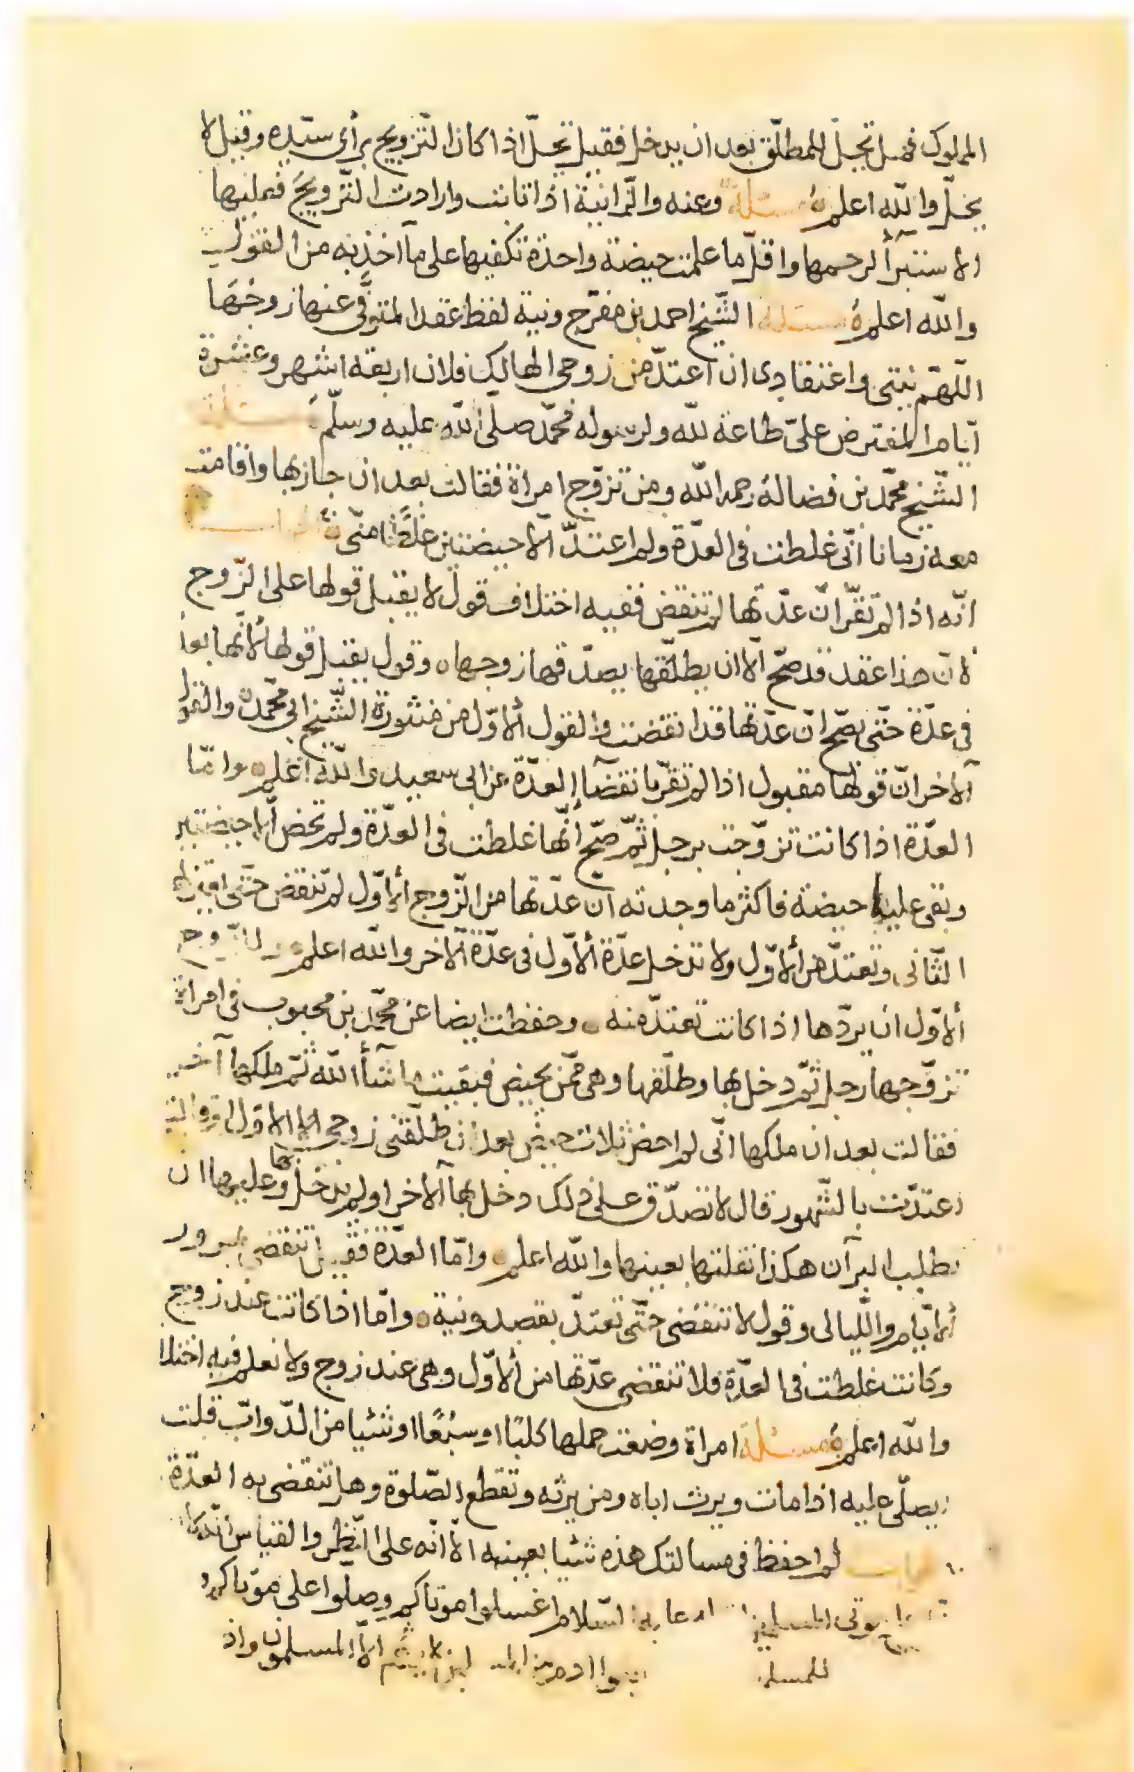 المملوك فهل تحلّ للمطلّق بعد ان يدخل فقيل تحلّ اذا كان التّزويج برأى سيّده وقيل لا
يحلّ والله اعلم مسئلة وعنه والزّانية اذا تابت وارادت التّزويج فعليها
الاستبرأ لرحمها واقلّ ما علمت حيضة واحدة تكفيها على ما آخذ به من القول
والله اعلم مسئلة الشّيخ احمد بن مفرّج ونية لفظ عقد المتوفّى عنها زوجها
اللّهمّ نيتى واعتقادى ان اعتدّ من زوجى الهالك فلان اربعة اشهر وعشرة
ايّام المفترض علىّ طاعة للّه ولرسوله محمّد صلّى اللّه عليه وسلّم مسئلة
الشّيخ محمّد بن فضالة رحمه اللّه ومن تزوّج امراة فقالت بعد ان جاز بها واقامت
معه زمانا انّى غلطت فى العدّة ولم اعتدّ الّا حيضتين غلطًا منّى الجواب
انّه اذا لم تقرّ انّ عدّتها لم تنقض ففيه اختلاف قول لا يقبل قولها على الزّوج
لانّ هذا عقد قد صحّ الّا ان يطلّقها يصدّقها زوجها وقول يقبل قولها لانّها بعد
فى عدّة حتّى يصحّ انّ عدّتها قد انقضت والقول الاوّل من منثورة الشّيخ ابى محمّد والقول
الاخر انّ قولها مقبول اذا لم تقرّ بانقضآء العدّة عن ابى سعيد واللّه اعلم وامّا
العدّة اذا كانت تزوّجت برجل ثمّ صحّ انّها غلطت فى العدّة ولم تحض الّا حيضتين
وبقى عليها حيضة فاكثر ما وجدته ان عدّتها من الزّوج الاوّل لم تنقض حتّى يعتزلها
الثّانى وتعتدّ من الاوّل ولا تدخل عدّة الاوّل فى عدّة الآخر واللّه اعلم وللزّوج
الاوّل ان يردّها اذا كانت تعتدّ منه وحفظت ايضا عن محمّد بن محبوب فى امراة
تزوّجها رجل ثمّ دخل بها وطلّقها وهى ممّن يحيض فبقيت ما شآء اللّه ثمّ ملكها آخر
فقالت بعد ان ملكها انّى لم احض ثلاث حيض بعد ان طلّقنى زوجى الاوّل
اعتدّت بالشّهور قال لا تصدّق على ذلك دخل بها الآخر او لم يدخل بها وعليها ان
تطلب البرآن هكذا نقلتها بعينها واللّه اعلم وامّا العدّة فقيل تنقضى بمرور
الايّام واللّيالى وقول لا تنقضى حتّى تعتدّ بقصد ونية وامّا اذا كانت عند زوج
وكانت غلطت فى العدّة فلا تنقضى عدّتها من الاوّل وهى عند زوج ولا نعلم فيه اختلافا
واللّه اعلم مسئلة امراة وضعت حملها كلبًا او سبُعًا او شيئا من الدّوابّ قلت
ايصلّى عليه اذا مات ويرث اباه ومن يرثه وتقطع الصّلوة وهل تنقضى به العدّة
الجواب لم احفظ فى مسالتك هذه شيئا بعينه الّا انّه على النّظر والقياس انّه كان
موتى المسلمين السّلام اغسلوا موتاكم وصلّوا على موتاكم
للمسلم الّا المسلمون واذ